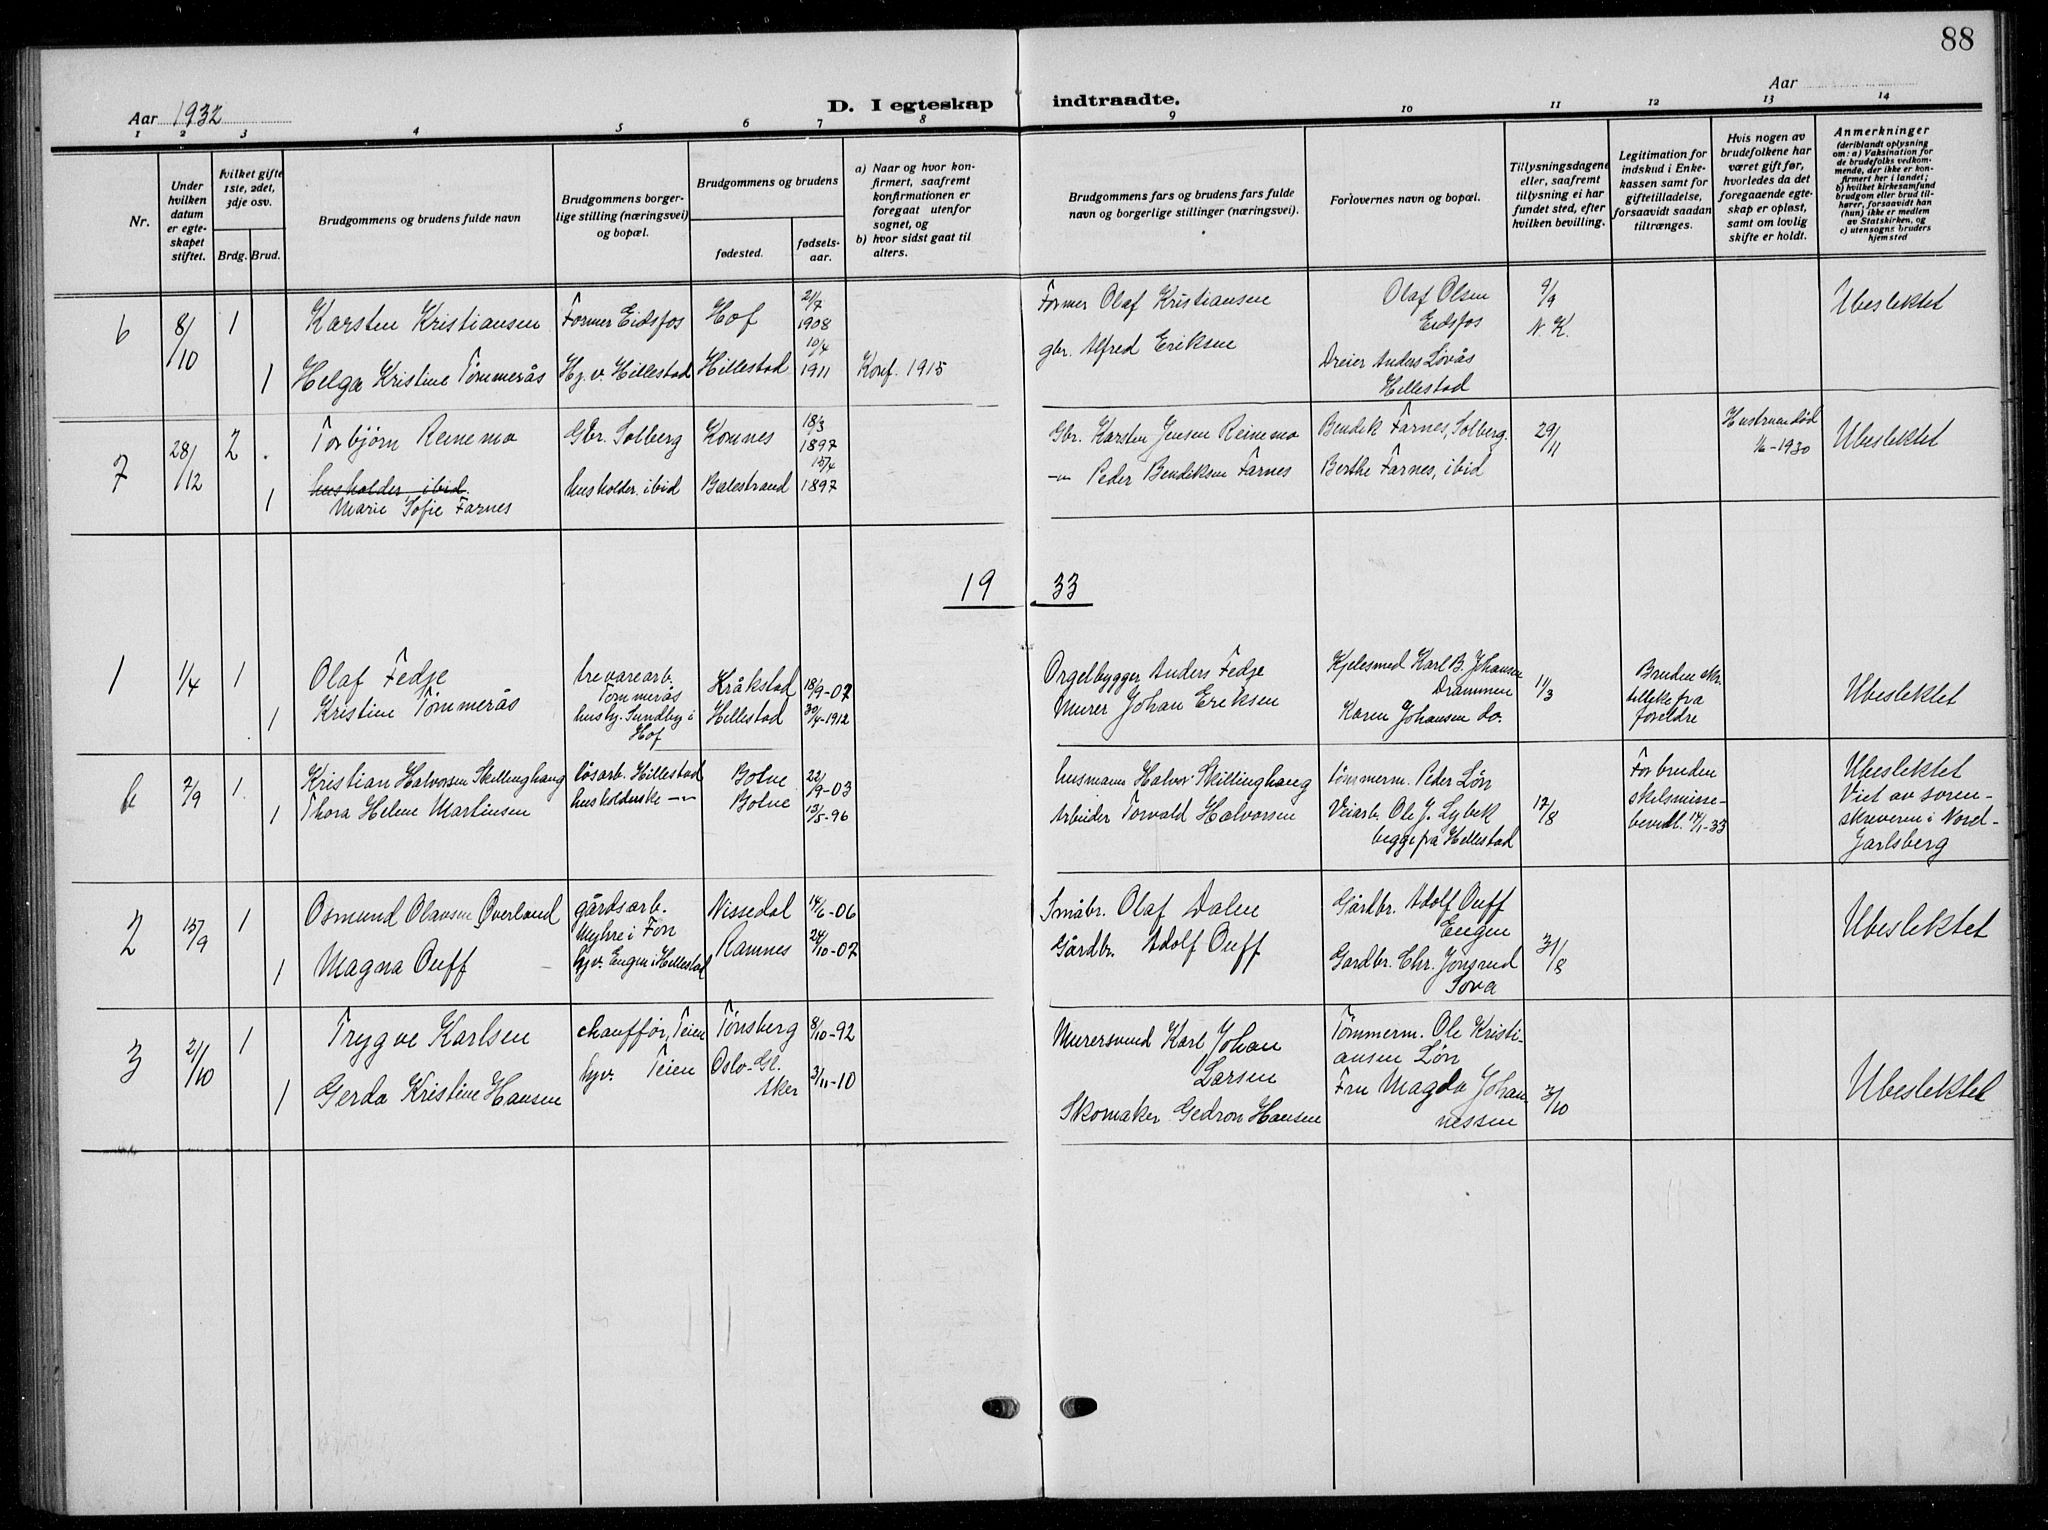 88
Aar 1932
D. I egteskap indtraadte.
Aar
1 2 3 4 5 6 7 8 9 10 11 12 13 14
Nr.
Under hvilken datum er egteskapet stiftet.
hvilket gifte 1ste, 2det, 3dje osv.
Brdg. Brud.
Brudgommens og brudens fulde navn
Brudgommens borgerlige stilling (næringsvei) og bopæl.
Brudgommens og brudens
fødested.
fødselsaar.
a) Naar og hvor konfirmert, saafremt konfirmationen er foregaat utenfor sognet, og
b) hvor sidst gaat til alters.
Brudgommens fars og brudens fars fulde navn og borgerlige stillinger (næringsvei).
Forlovernes navn og bopæl.
Tillysningsdagene eller, saafremt tillysning ei har fundet sted, efter hvilken bevilling.
Legitimation for indskud i Enkekassen samt for giftetilladelse, forsaavidt saadan tiltrænges.
Hvis nogen av brudefolkene har været gift før, hvorledes da det foregaaende egteskap er opløst, samt om lovlig skifte er holdt.
Anmerkninger (deriblandt oplysning om: a) Vaksination for de brudefolks vedkommende, der ikke er konfirmert her i landet; b) hvilket kirkesamfund brudgom eller brud tilhører, forsaavidt han (hun) ikke er medlem av Statskirken, og c) utensogns bruders hjemsted
6 8/10 1 Karsten Kristiansen Former Eidsfos Hof 21/7 1908 Former Olaf Kristiansen Olaf Olsen Eidsfos 9/9 N.K. Ubeslektet
1 Helga Kristine Tømmerås Hj.v. Hillestad Hillestad 10/4 1911 Konf. 1915 gbr. Alfred Eriksen Dreier Anders Løvås Hillestad
7 28/12 2 Torbjørn Reinemo Gbr. Solberg Komnes 18/3 1897 Gbr. Karsten Jensen Reinemo Bendik Farnes, Solberg. 29/11 Hustruen død 1/6-1930 Ubeslektet
1 husholder ibid. Marie Sofie Farnes husholder. ibid Balestrand 15/4 1897 -"- Peder Bendiksen Farnes Berthe Farnes, ibid
19 33
1 1/4 1 Olaf Fedje trevarearb. Tømmerås Kråkstad 18/9-07 Orgelbygger Anders Fedje Kjelesmed Karl B. Johansen Drammen 11/3 Bruden skr. tilleke fra foreldre Ubeslektet
1 Kristine Tømmerås hushj. Sundby i Hof Hillestad 30/4-1912 Murer Johan Eriksen Karen Johansen do.
b 2/9 1 Kristian Halvorsen Skillinghaug løsarb. Hillestad Botne 22/9-03 husmann Halvor Skillinghaug tømmerm. Peder Løn 17/8 For bruden skilsmissebevill. 14/1-33 Ubeslektet Viet av sorenskriveren i Nord-Jarlsberg
1 Thora Helene Martinsen husholderske -"- Botne 13/5-96 Arbeider Torvald Halvorsen Veiarb. Ole J. Lybek begge fra Hillestad
2 15/9 1 Osmund Olavsen Øverland gårdsarb. Myhre i Fon Nissedal 14/6-06 Småbr. Olaf Dalen Gårdbr. Adolf Ouff Engen 31/8 Ubeslektet
1 Magna Ouff hjv. Engen i Hillestad Ramnes 24/10-07 Gårdbr. Adolf Ouff Gardbr. Chr. Jonsrud Sova
3 21/10 1 Trygve Karlsen chauffør, Teien Tønsberg 8/10-92 Murersvend Karl Johan Larsen Tømmerm. Ole Kristiansen Løn 3/10 Ubeslektet
1 Gerda Kristine Hansen hjv. Teien Oslo-Gl. Aker 3/11-10 Skomaker Gedron Hansen Fru Magda Johannessen